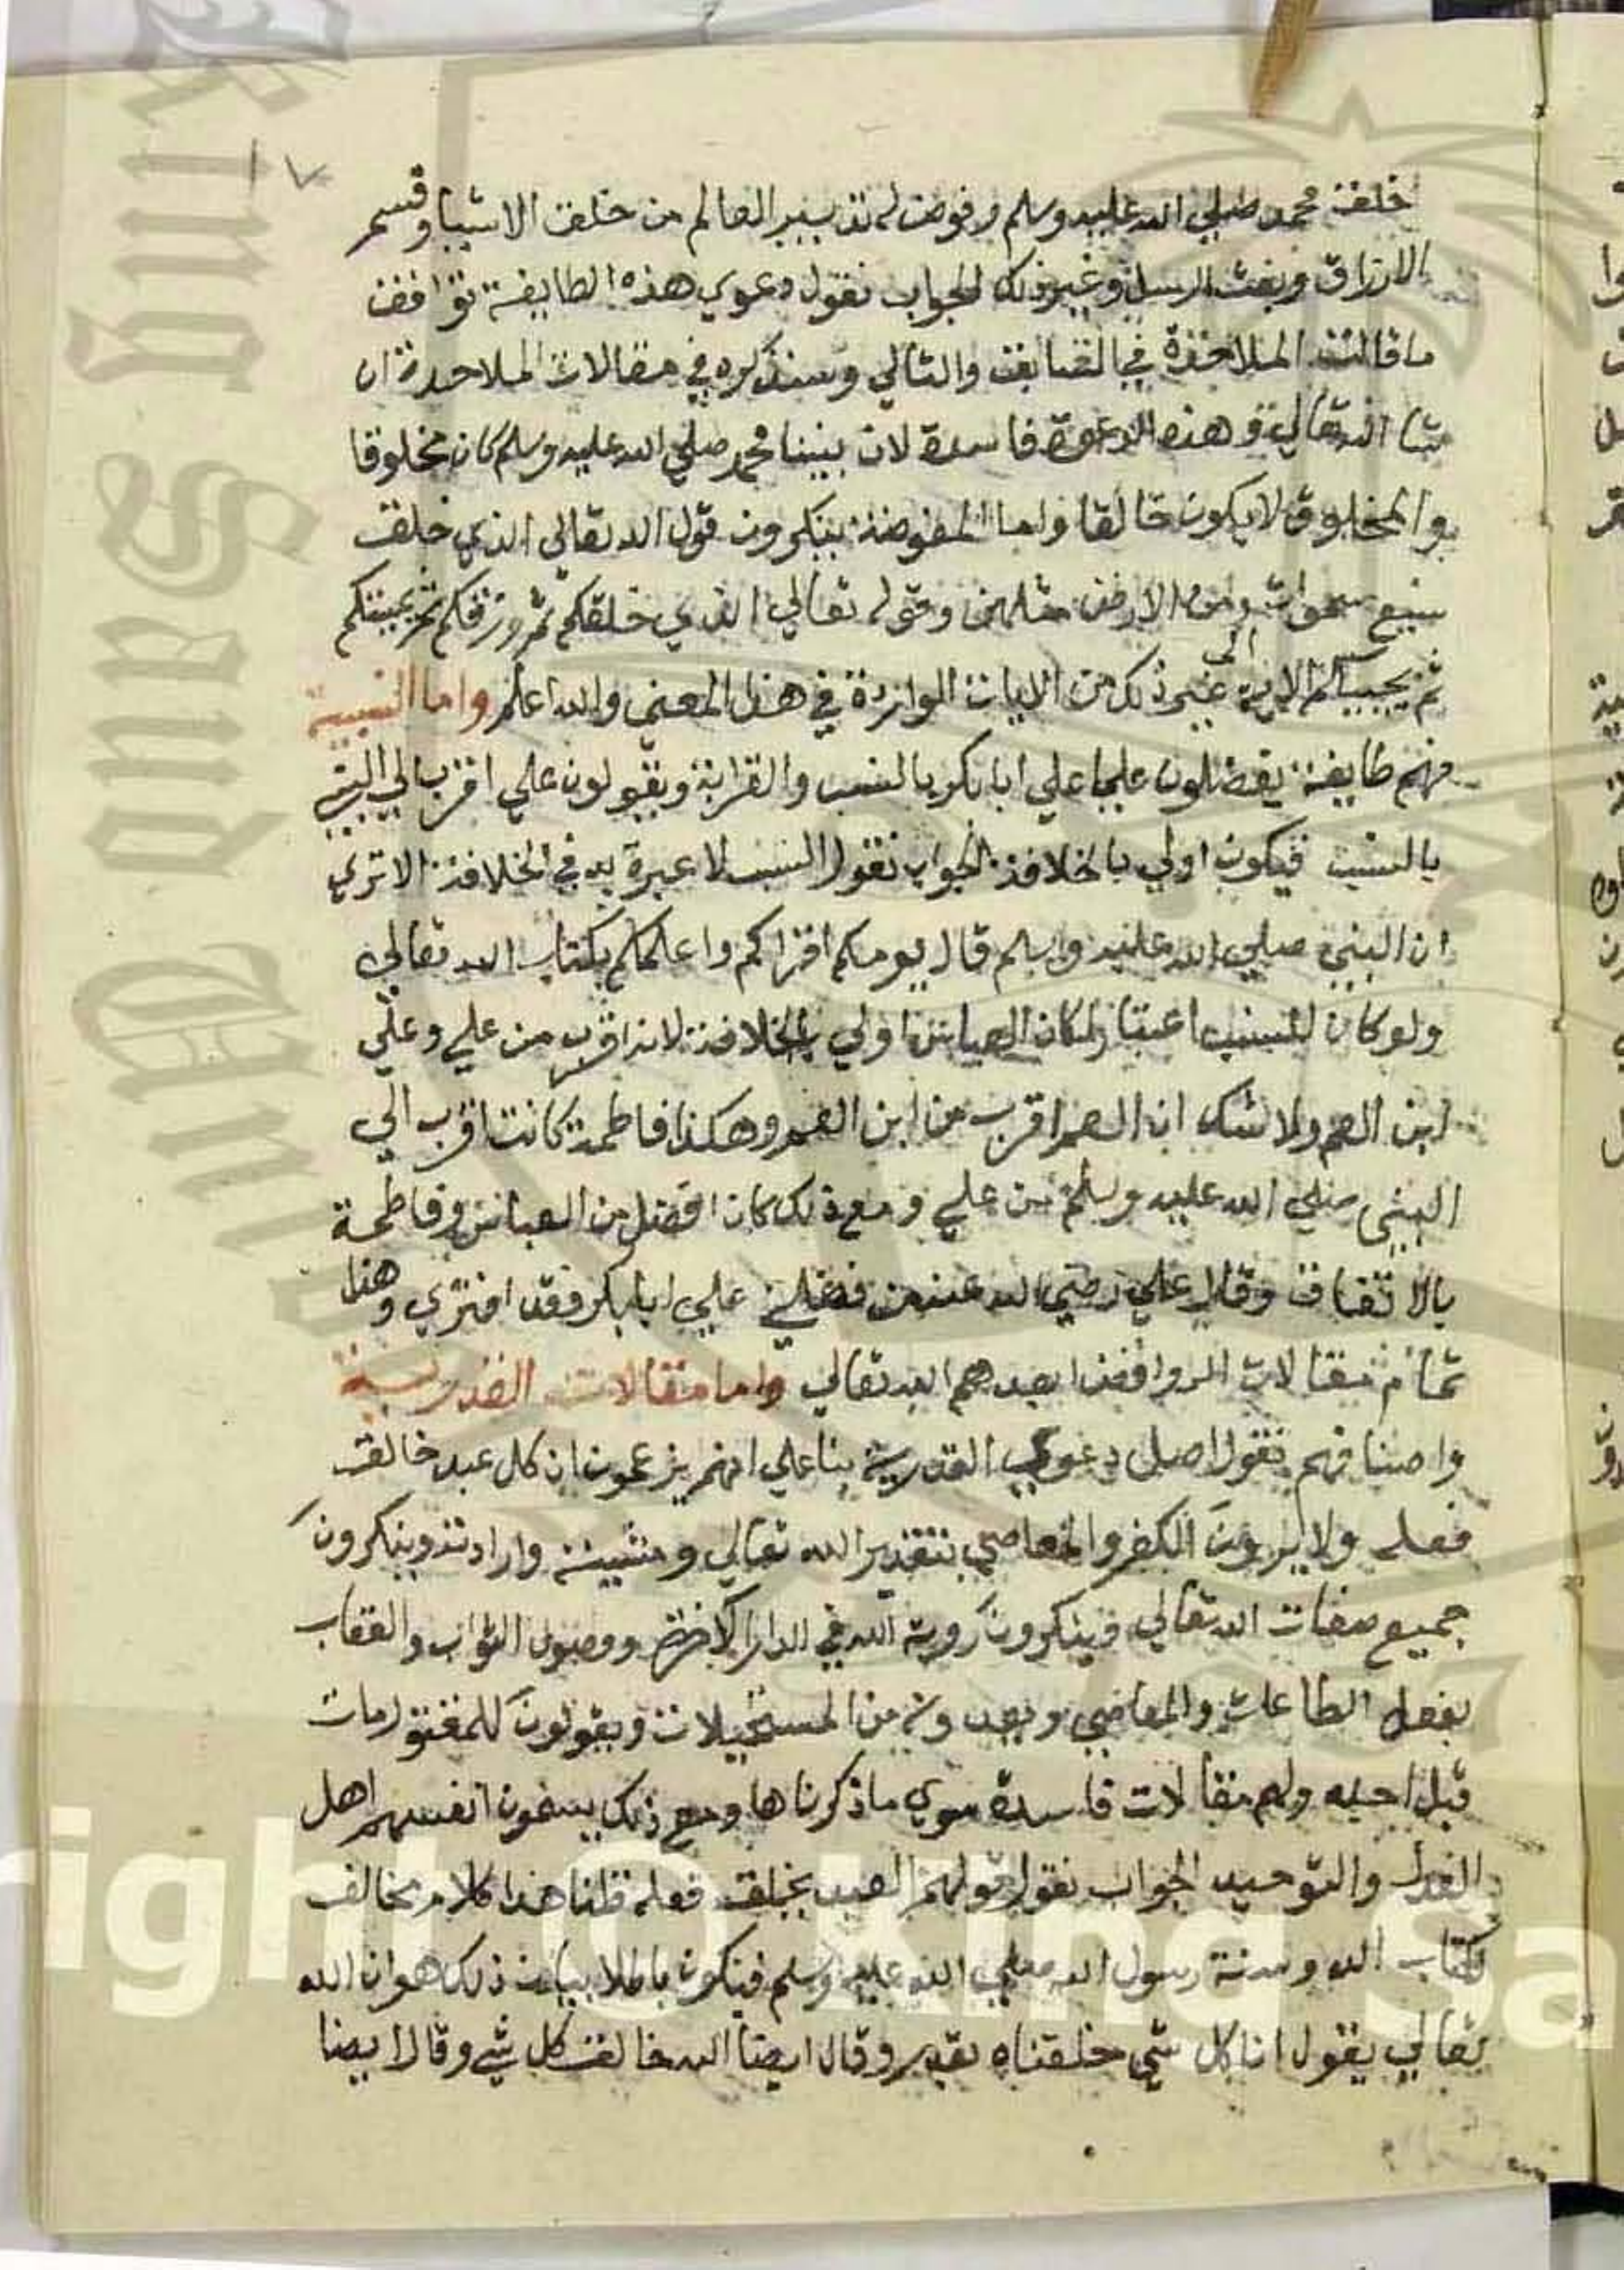 خلق محمد صلي الله عليه وسلم وفوض له تدبير العالم من خلق الاشيا وقسم
الارزاق وبعث الرسل وغير ذلك الجواب نقول دعوي هذه الطايفة توافق
ما قالت الملاحدة في السابق والتالي وسنذكره في مقالات الملاحدة ان
شا الله تعالي وهذه الدعوة فاسدة لان نبينا محمد صلي الله عليه وسلم كان مخلوقا
والمخلوق لا يكون خالقا واما المفوضة ينكرون قول الله تعالي الذي خلق
سبع سموات ومن الارض مثلهن وقوله تعالي الذي خلقكم ثم رزقكم ثم يميتكم
ثم يحييكم الاية الي غير ذلك من الايات الواردة في هذا المعني والله اعلم واما النسبية
فهم طايفة يفضلون عليا علي ابا بكر بالنسب والقرابة ويقولون علي اقرب الي النبي
بالنسب فيكون اولي بالخلافة الجواب نقول النسب لا عبرة به في الخلافة الا تري
ان النبي صلي الله عليه وسلم قال يومكم اقراكم واعلمكم بكتاب الله تعالي
ولو كان للنسب اعتبار لكان العباس اولي بالخلافة لانه اقرب من علي وعلي
ابن العم ولا شك ان العم اقرب من ابن العم وهكذا فاطمة كانت اقرب الي
النبي صلي الله عليه وسلم من علي ومع ذلك كان افضل من العباس وفاطمة
بالاتفاق وقال علي رضي الله عنه من فضلني علي ابا بكر فقد افتري وهذا
تمام مقالات الروافض ابعدهم الله تعالي واما مقالات القدرية
واصنافهم نقول اصل دعوي القدرية بنا علي انهم يزعمون ان كل عبد خالق
فعله ولا يرون الكفر والمعاصي بتقدير الله تعالي ومشيته وارادته وينكرون
جميع صفات الله تعالي فينكرون روية الله في الدار الاخرة ووصول الثواب والعقاب
بفعل الطاعات والمعاصي ويعدونه من المستحيلات ويقولون للمقتول مات
قبل اجله ولهم مقالات فاسدة سوي ما ذكرناها ومع ذلك يسمون انفسهم اهل
العدل والتوحيد الجواب نقول قولهم العبد يخلق فعله قلنا هذا كلام مخالف
لكتاب الله وسنة رسول الله صلي الله عليه وسلم فيكون باطلا بيان ذلك هو ان الله
تعالي يقول انا كل شي خلقناه بقدر وقال ايضا الله خالق كل شي وقال ايضا